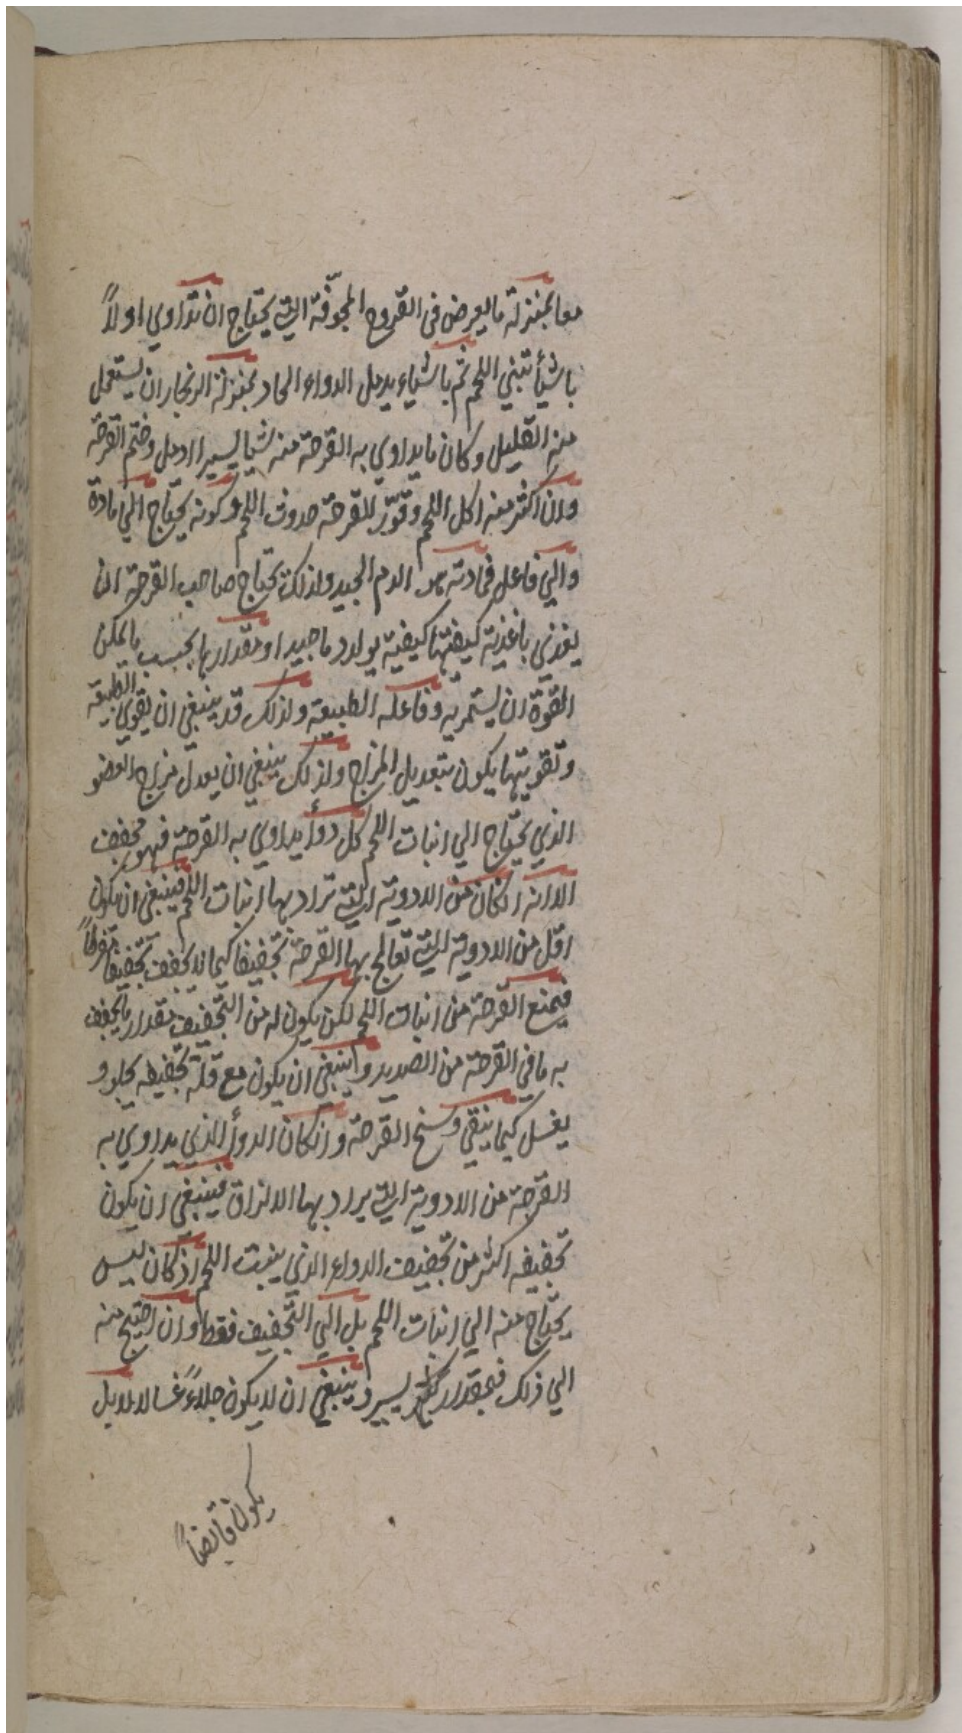 معا بمنزلة ما يعرض فى القروح المجوّفة التي يحتاج ان تداوي اولاً
باشيأ تبني اللحم ثم باشياء يدمل الدواء الحاد بمنزلة الزنجار ان يستعمل
منه القليل وكان ما يداوي به القرحة منه شيا يسيرا ادمل وختم القرحة
وان اكثر منه اكل اللحم وقوّر للقرحة حدوث اللحم وكونه يحتاج الي مادة
والي فاعل فمادته الدم الجيد ولذلك يحتاج صاحب القرحة ان
يغذي باغذية كيفيتها كيفية يولد دما جيدا ومقدارها بحسب ما يمكن
القوة ان يستمريه وفاعله الطبيعة ولذلك قد ينبغي ان يقوي الطبيعة
وتقويتها يكون بتعديل المزاج ولذلك ينبغي ان يعدل مزاج العضو
الذي يحتاج الي انبات اللحم كل دوأ يداوي به القرحة فهو مجفف
الا انه ان كان من الادوية التي تراد بها انبات اللحم فينبغي ان يكون
اقل من الادوية التي تعالج بها القرحة تجفيفا كيما لا يجفف تجفيفا مفرطاً
فيمنع القرحة من انبات اللحم لكن يكون له من التجفيف بمقدار ما يجفف
به ما في القرحة من الصديد وينبغي ان يكون مع قلة تجفيفه يجلو و
يغسل كيما ينقي وسخ القرحة وان كان الدوأ الذي يداوي به
القرحة من الادوية التي يراد بها الالزاق فينبغي ان يكون
تجفيفه اكثر من تجفيف الدواء الذي ينبت اللحم اذ كان ليس
يحتاج منه الي انبات اللحم بل الي التجفيف فقط وان احتيج منه
الي ذلك فبمقدار يسير وينبغي ان لا يكون جلاءً غسالا بل
يكون قابضاً